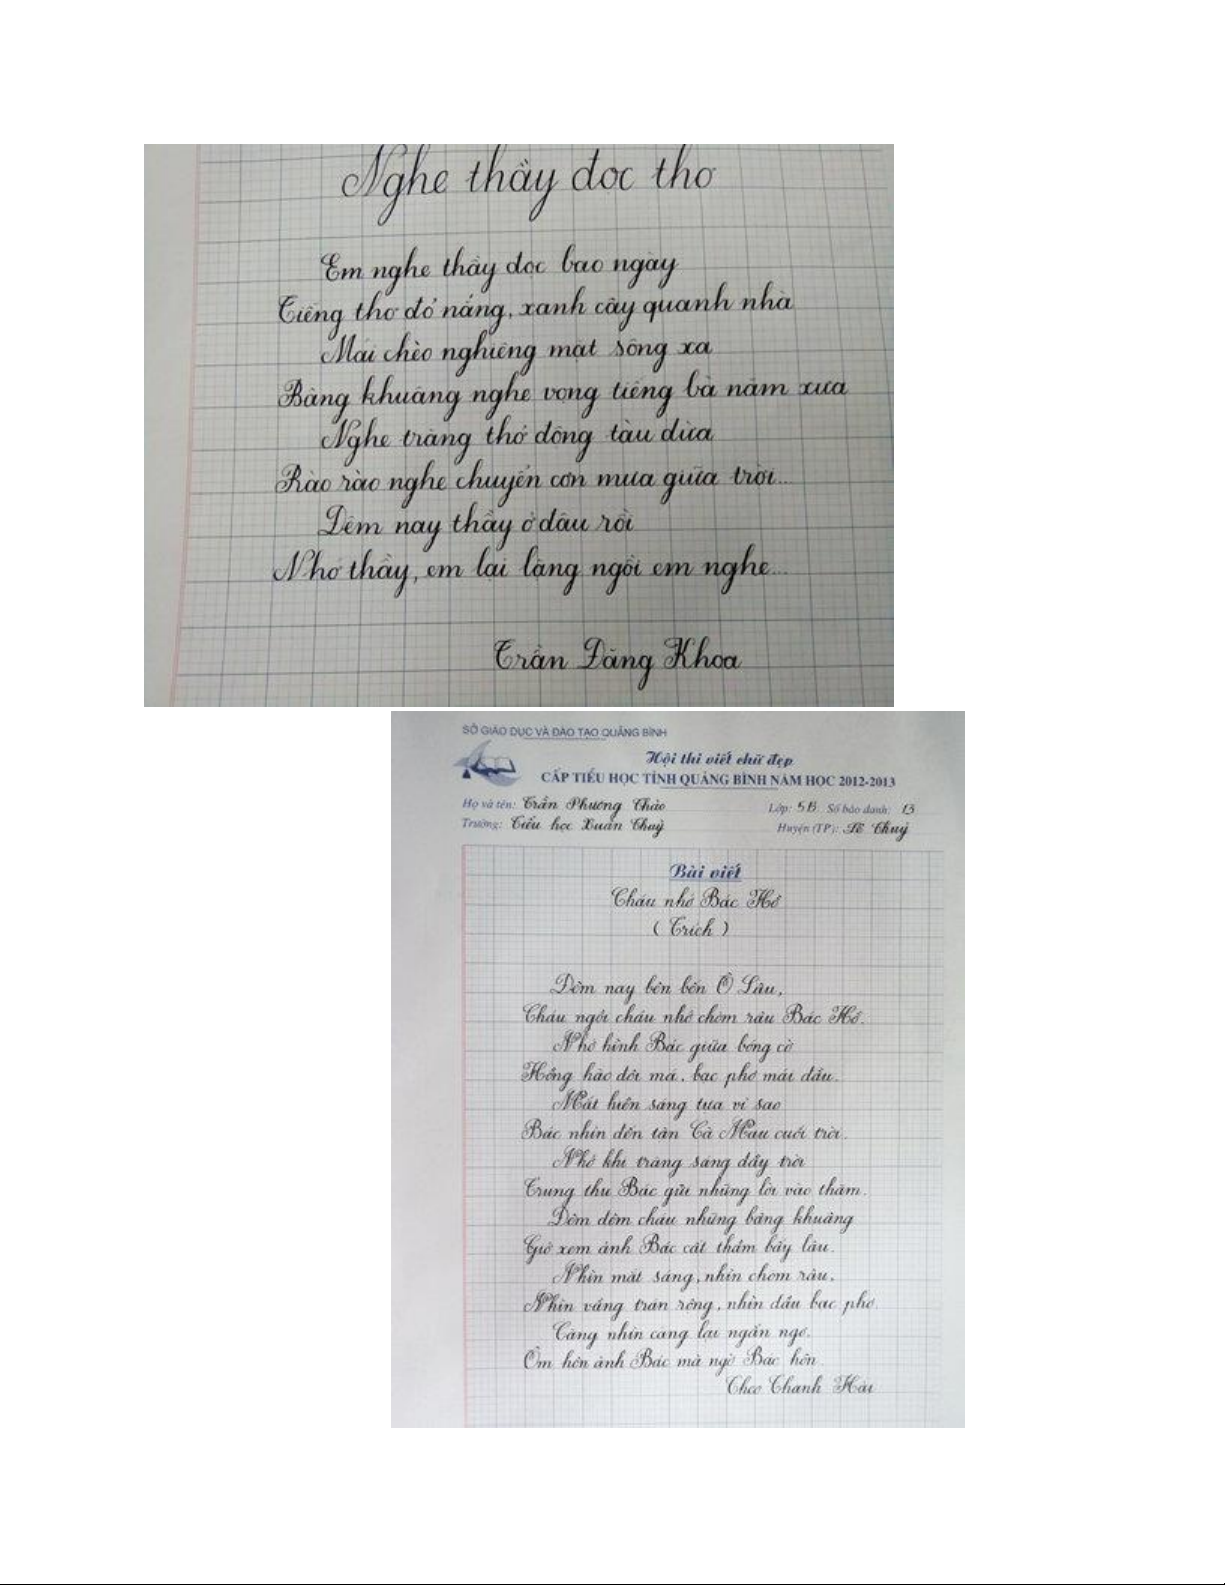 Nghe thầy đọc thơ
Em nghe thầy đọc bao ngày
Tiếng thơ đỏ nắng, xanh cây quanh nhà
Mái chèo nghiêng mặt sông xa
Bâng khuâng nghe vọng tiếng bà năm xưa
Nghe trăng thở động tàu dừa
Rào rào nghe chuyển cơn mưa giữa trời...
Đêm nay thầy ở đâu rồi
Nhớ thầy, em lại lặng ngồi em nghe...
Trần Đăng Khoa
SỞ GIÁO DỤC VÀ ĐÀO TẠO QUẢNG BÌNH
Hội thi viết chữ đẹp
CẤP TIỂU HỌC TỈNH QUẢNG BÌNH NĂM HỌC 2012-2013
Họ và tên: Trần Phương Thảo Lớp: 5B Số báo danh: 13
Trường: Tiểu học Xuân Thuỷ Huyện (TP): Lệ Thuỷ
Bài viết
Cháu nhớ Bác Hồ
( Trích )
Đêm nay bên bến Ô Lâu,
Cháu ngồi cháu nhớ chòm râu Bác Hồ.
Nhớ hình Bác giữa bóng cờ
Hồng hào đôi má, bạc phơ mái đầu.
Mắt hiền sáng tựa vì sao
Bác nhìn đến tận Cà Mau cuối trời.
Nhớ khi trăng sáng đầy trời
Trung thu Bác gửi những lời vào thăm.
Đêm đêm cháu những bâng khuâng
Giở xem ảnh Bác cất thầm bấy lâu.
Nhìn mắt sáng, nhìn chòm râu,
Nhìn vầng trán rộng, nhìn đầu bạc phơ.
Càng nhìn càng lại ngẩn ngơ,
Ôm hôn ảnh Bác mà ngờ Bác hôn.
Theo Thanh Hải